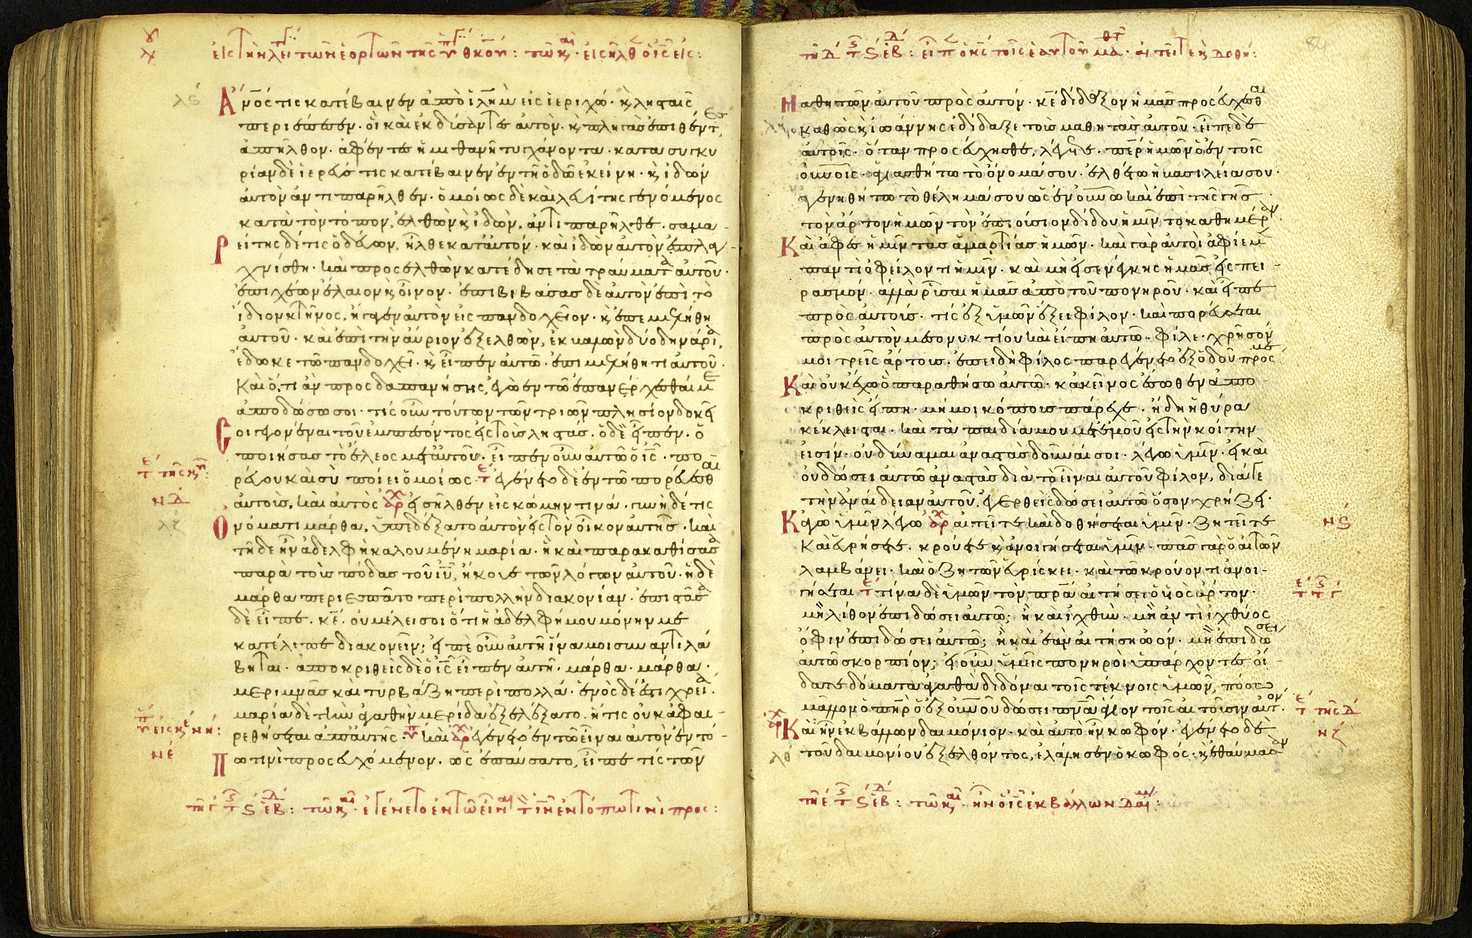 Ἄνος τις κατέβαινεν ἀπὸ ἰλημ εἰς ἱεριχώ· κ λησταῖς
περιέπεσεν· οἳ καὶ ἐκδύσαντες αὐτὸν· κ πληγὰς ἐπιθέντες
ἀπῆλθον· ἀφέντες ἡμιθανῆ τυγχάνοντα· κατὰ συγκυ
ρίαν δὲ ἱερεύς τις κατέβαινεν ἐν τῇ ὁδῶ ἐκείνη· κ ἰδὼν
αὐτὸν ἀντιπαρῆλθεν· ὁμοίως δὲ καὶ λευίτης γενόμενος
κατὰ τὸν τόπον, ἐλθὼν κ ἰδὼν, ἀντιπαρῆλθε· σαμα-
ρείτης δέ τις ὁδεύων, ἦλθε κατ αὐτόν· καὶ ἰδὼν αὐτὸν ἐσπλα-
χνίσθη· καὶ προσελθὼν κατέδησε τὰ τραύματα αὐτοῦ·
ἐπιχέων ἔλαιον κ οἶνον· ἐπιβιβάσας δὲ αὐτὸν ἐπὶ τὸ
ἴδιον κτῆνος, ἤγαγεν αὐτὸν εἰς πανδοχεῖον· κ ἐπεμελήθη
αὐτοῦ· καὶ ἐπὶ τὴν αὔριον ἐξελθὼν, ἐκβαλὼν δύο δηνάρια,
ἔδωκε τῶ πανδοχεῖ· κ εἶπεν αὐτῶ· ἐπιμελήθητι αὐτοῦ·
Καὶ ὅ,τι ἂν προσδαπανήσης, ἐγὼ ἐν τῶ ἐπανέρχεσθαί με
ἀποδώσω σοι· τίς οὖν τούτων τῶν τριῶν πλησίον δοκεῖ
σοι γεγονέναι τοῦ ἐμπεσόντος εἰς τοὺς ληστάς· ὁ δὲ εἶπεν· ὁ
ποιήσας τὸ ἔλεος μετ αὐτοῦ· εἶπεν οὖν αὐτῶ ὁ ις· πο
ρεύου καὶ σὺ ποίει ὁμοίως· ἐγένετο δὲ ἐν τῶ πορεύεσθαι
αὐτοὺς, καὶ αὐτὸς εἰσῆλθεν εἰς κώμην τινά· γυνὴ δέ τις
Ὀνόματι μάρθα, ὑπεδέξατο αὐτὸν εἰς τὸν οἶκον αὐτῆς· καὶ
τῆδε ἦν ἀδελφὴ καλουμένη μαρία· ἣ καὶ παρακαθίσασα
παρὰ τοὺς πόδας τοῦ ιυ, ἤκουε τῶν λόγων αὐτοῦ· ἡ δὲ
μάρθα περιεσπᾶτο περὶ πολλὴν διακονίαν· ἐπιστᾶσα
δὲ εἶπε· κε· οὐ μέλει σοι ὅτι ἡ ἀδελφή μου μόνην με
κατέλιπε διακονεῖν; εἰπὲ οὖν αὐτῆ ἵνα μοι συναντιλά
βηται· ἀποκριθεὶς δὲ ὁ ις εἶπεν αὐτῆ· μάρθα· μάρθα·
μεριμνᾶς καὶ τυρβάζη περὶ πολλά· ἑνὸς δέ ἐστι χρεία·
μαρία δὲ τὴν ἀγαθὴν μερίδα ἐξελέξατο· ἥτις οὐκ ἀφαι-
ρεθήσεται ἀπ αὐτῆς· καὶ ἐγένετο ἐν τῶ εἶναι αὐτὸν ἐν τό-
Πω τινὶ προσευχόμενον· ὡς ἐπαύσατο, εἶπέ τις τῶν
μαθητῶν αὐτοῦ πρὸς αὐτόν· κε δίδαξον ἡμᾶς προσεύχεσθαι
καθὼς κ ἰωάννης ἐδίδαξε τοὺς μαθητὰς αὐτοῦ· εἶπε δὲ
αὐτοῖς· ὅταν προσεύχησθε, λέγετε· περ ἡμῶν ὁ ἐν τοῖς
οὐνοῖς· ἁγιασθήτω τὸ ὄνομά σου· ἐλθέτω ἡ βασιλεία σου·
γενηθήτω τὸ θέλημά σου ὡς ἐν οὐνῶ καὶ ἐπὶ τῆς γῆς·
τὸν ἄρτον ἡμῶν τὸν ἐπιούσιον δίδου ἡμῖν τὸ καθ ἡμέραν·
Καὶ ἄφες ἡμῖν τὰς ἁμαρτίας ἡμῶν· καὶ γὰρ αὐτοὶ ἀφίεμεν
παντὶ ὀφείλοντι ἡμῖν· καὶ μὴ εἰσενέγκης ἡμᾶς εἰς πει-
ρασμόν· ἀλλὰ ῥῦσαι ἡμᾶς ἀπὸ τοῦ πονηροῦ· καὶ εἶπε
πρὸς αὐτούς· τίς ἐξ ὑμῶν ἕξει φίλον· καὶ πορεύσεται
πρὸς αὐτὸν μεσονυκτίου καὶ εἴπη αὐτῶ· φίλε· χρῆσόν
μοι τρεῖς ἄρτους· ἐπειδὴ φίλος παρεγένετο ἐξ ὁδοῦ πρός με
Καὶ οὐκ ἔχω ὃ παραθήσω αὐτῶ· κἀκεῖνος ἔσωθεν ἀπο
κριθεὶς εἴπη· μή μοι κόπους πάρεχε· ἤδη ἡ θύρα
κέκλεισται· καὶ τὰ παιδία μου μετ ἐμοῦ εἰς τὴν κοίτην
εἰσίν· οὐ δύναμαι ἀναστὰς δοῦναί σοι· λέγω ὑμῖν· εἰ καὶ
οὐ δώσει αὐτῶ ἀναστὰς διὰ τὸ εἶναι αὐτοῦ φίλον, διά γε
τὴν ἀναίδειαν αὐτοῦ, ἐγερθεὶς δώσει αὐτῶ ὅσων χρήζει·
Κἀγὼ ὑμῖν λέγω αἰτεῖτε καὶ δοθήσεται ὑμῖν· ζητεῖτε
Καὶ εὑρήσετε· κρούετε κ ἀνοιγήσεται ὑμῖν· πᾶς γὰρ ὁ αἰτῶν
λαμβάνει· καὶ ὁ ζητῶν εὑρίσκει· καὶ τῶ κρούοντι ἀνοι-
γήσεται τίνα δὲ ὑμῶν τὸν πρα αἰτήσει ὁ υἱὸς ἄρτον·
μὴ λίθον ἐπιδώσει αὐτῶ; ἢ καὶ ἰχθὺν· μὴ ἀντὶ ἰχθύος
ὄφιν ἐπιδώσει αὐτῶ; ἢ καὶ ἐὰν αἰτήση ὠόν· μὴ ἐπιδώσει
αὐτῶ σκορπίον; εἰ οὖν ὑμεῖς πονηροὶ ὑπάρχοντες οἴ-
δατε δόματα ἀγαθὰ διδόναι τοῖς τέκνοις ὑμῶν, πόσω
μᾶλλον ὁ πηρ ὁ ἐξ οὐνοῦ δώσει πνα ἅγιον τοῖς αἰτοῦσιν αὐτόν
Καὶ ἦν ἐκβάλλων δαιμόνιον· καὶ αὐτὸ ἦν κωφόν· ἐγένετο δὲ
τοῦ δαιμονίου ἐξελθόντος, ἐλάλησεν ὁ κωφός· κ ἐθαύμασαν